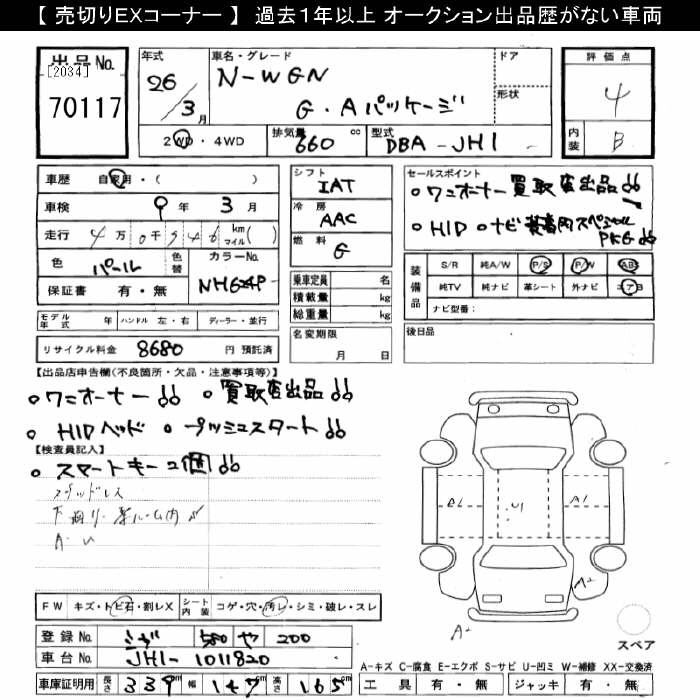 【 売切りEXコーナー 】 過去1年以上 オークション出品歴がない車両
出品No. [2034] 70117
年式 26/3月
車名・グレード N-WGN G・Aパッケージ
ドア
形状
評価点 4
内装 B
2WD・4WD
排気量 660cc
型式 DBA-JH1
車歴 自家用・( )
車検 9年3月
走行 4万0千946 km マイル( )
色 パール 色替
カラーNo. NH624P
保証書 有・無
シフト IAT
冷房 AAC
燃料 G
乗車定員 名
積載量 kg
総重量 kg
セールスポイント
ワンオーナー 買取直出品
HID ナビ 装着用スペシャルPKG
装備品
S/R 純A/W P/S P/W ABS
純TV 純ナビ 革シート 外ナビ エアB
ナビ型番:
モデル年式 年 ハンドル 左・右 ディーラー・並行
名変期限 月 日
後日品
リサイクル料金 8680 円 預託済
【出品店申告欄(不良箇所・欠品・注意事項等)】
ワンオーナー 買取直出品
HIDヘッド プッシュスタート
【検査員記入】
スマートキー2個
スタッドレス
A・U
A2 U1 A1
A2
A2
FW キズ・トビ石・割レX シート内装 コゲ・穴・汚レ・シミ・破レ・スレ
登録No. 580 や 200
車台No. JH1-1011820
スペア
A-キズ C-腐食 E-エクボ S-サビ U-凹ミ W-補修 XX-交換済
車庫証明用 長さ 339 幅 147 高さ 165cm
工具 有・無 ジャッキ 有・無